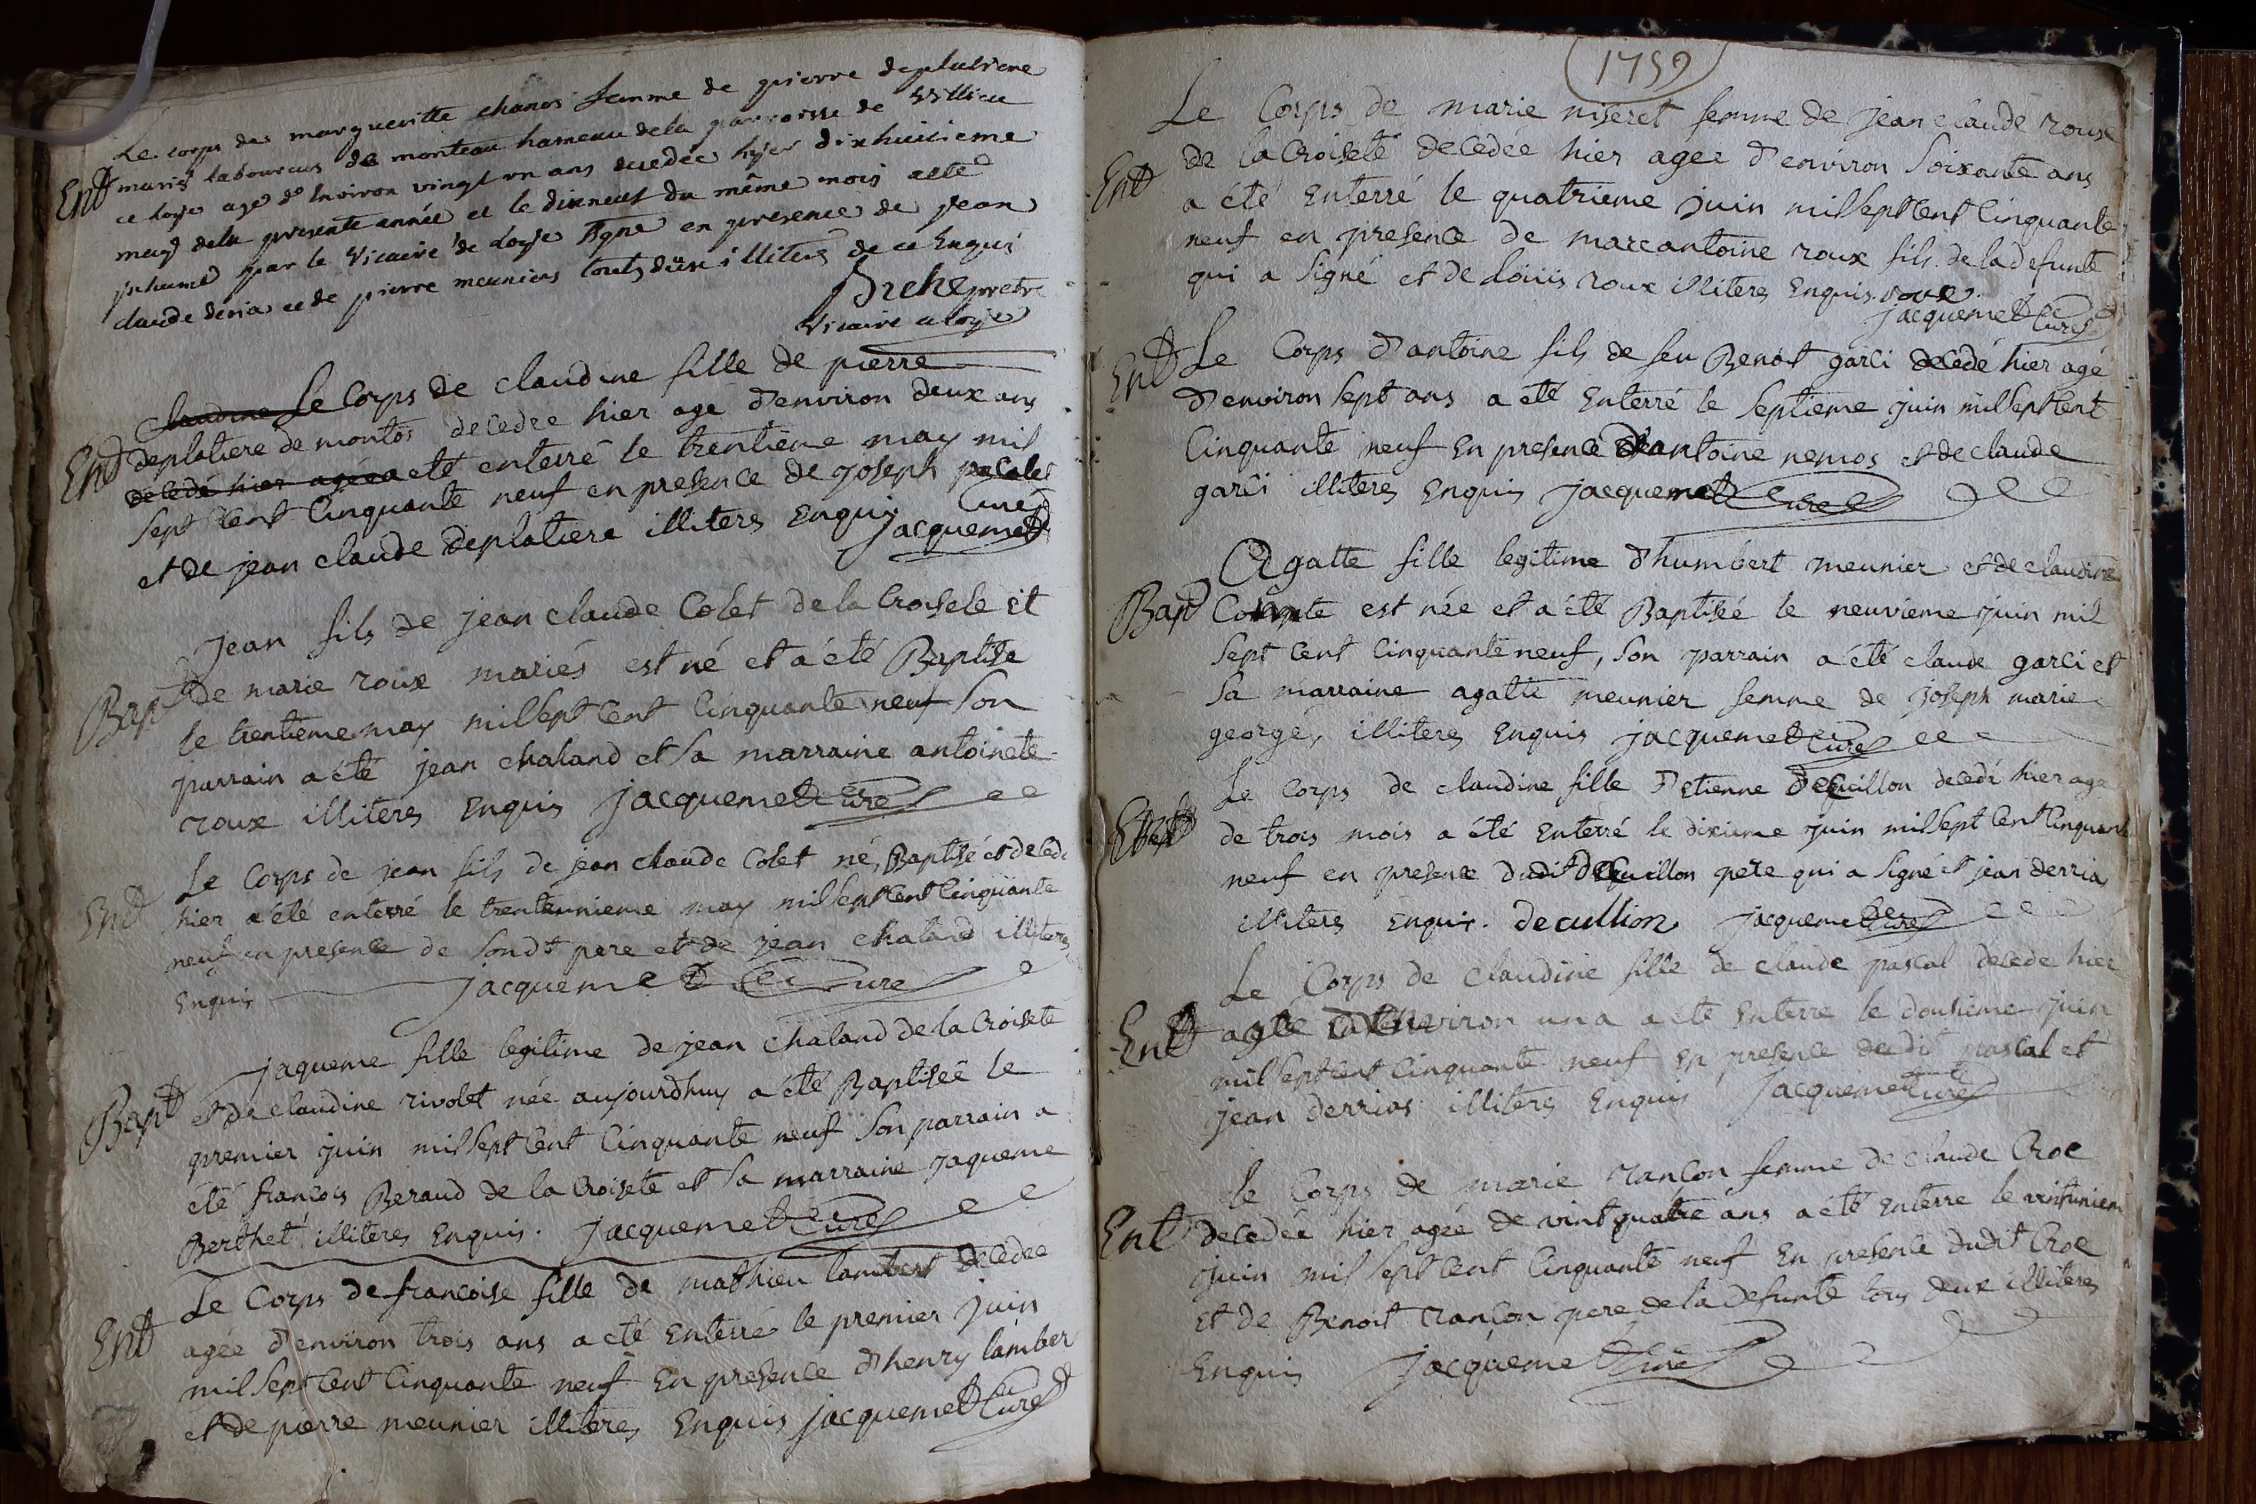 Le corps de margueritte chanos femme de pierre deplatiere
Ent
mariés laboureurs de monteau hameau de la parroisse de Villieu
ce loye age d'environ vingt un ans decedée hyer dixhuitieme
may dela presente année et le dixneuf du même mois a été
inhumé par le Vicaire de Loye signé en presence de jean
claude deria et de pierre meuniers touts deux illiteres de ce Enquis
pretre
Vicaire a loye
claudine Le Corps de claudine fille de pierre
Ent deplatiere de montos decedée hier age d'environ deux ans
decedé hier agée a eté enterré le trentieme may mil
sept Cent Cinquante neuf en presence de joseph pacalet
et de jean claude deplatiere illiteres Enquis jacquemet Curé
jean fils de jean claude Colet de la Croisete et
Bapt de marie roux mariés est né et a été Baptise
le trentieme may mil sept Cent Cinquante neuf son
parrain a été jean chaland et sa marraine antoinete
roux illiteres Enquis jacquemet Curé
Le Corps de jean fils de jean claude Colet né, Baptisé et decedé
Ent hier a été enterré le trenteunieme may mil sept Cent Cinquante
neuf en presence de sondt pere et de jean chaland illiteres
Enquis jacquemet Curé
jaqueme fille legitime de jean chaland de la Croisete
Bapt et de claudine rivolet née aujourdhuy a été Baptisée le
premier juin mil sept Cent Cinquante neuf son parrain a
été françois Beraud de la Croisete et sa marraine jaqueme
Berthet illiteres Enquis. jacquemet Curé
Le Corps de francoise fille de mathieu lambert decedée
Ent agée d'environ trois ans a eté Enterré le premier juin
mil sept Cent Cinquante neuf En presence d'henry lamber
et de pierre meunier illiteres Enquis jacquemet Curé
1759
Le Corps de marie niseret femme de jean claude roux
Ent de la Croiseté decedée hier agee d'environ soixante ans
a été Enterré le quatrieme juin mil sept Cent Cinquante
neuf en presence de marc antoine roux fils de la defunte
qui a signé et de loüis roux illiteres Enquis. roux
jacquemet Curé
Ent Le Corps d'antoine fils de feu Benoit garci decedé hier agé
d'environ sept ans a été Enterré le septieme juin mil sept Cent
Cinquante neuf En presence d'antoine nemos et de claude
garci illiteres Enquis jacquemet Curé
Agatte fille legitime d'humbert meunier et de claudine
Bapt Comte est née et a été Baptisée le neuvieme juin mil
sept Cent Cinquante neuf, son parrain a été claude garci et
sa marraine agatte meunier femme de joseph marie
george, illiteres Enquis jacquemet Curé
Le Corps de claudine fille d'Etienne decuillon decedé hier age
Ent de trois mois a été Enterré le dixieme juin mil sept Cent Cinquante
neuf en presence dudit decuillon pere qui a signé et jean derria
illiteres Enquis. decullion jacquemet Curé
Le Corps de Claudine fille de claude pascal decede hier
Ent agée d'environ un a a eté Enterre le dousieme juin
mil sept Cent Cinquante neuf En presence dudit pascal et
jean derrias illiteres Enquis jacquemet Curé
Le Corps de marie rançon femme de claude Croc
Ent decedée hier agée de vint quatre ans a été Enterre le vintunieme
juin mil sept Cent Cinquante neuf En presence dudit Croc
et de Benoit rançon pere de la defunte tous deux illiteres
Enquis jacquemet Curé